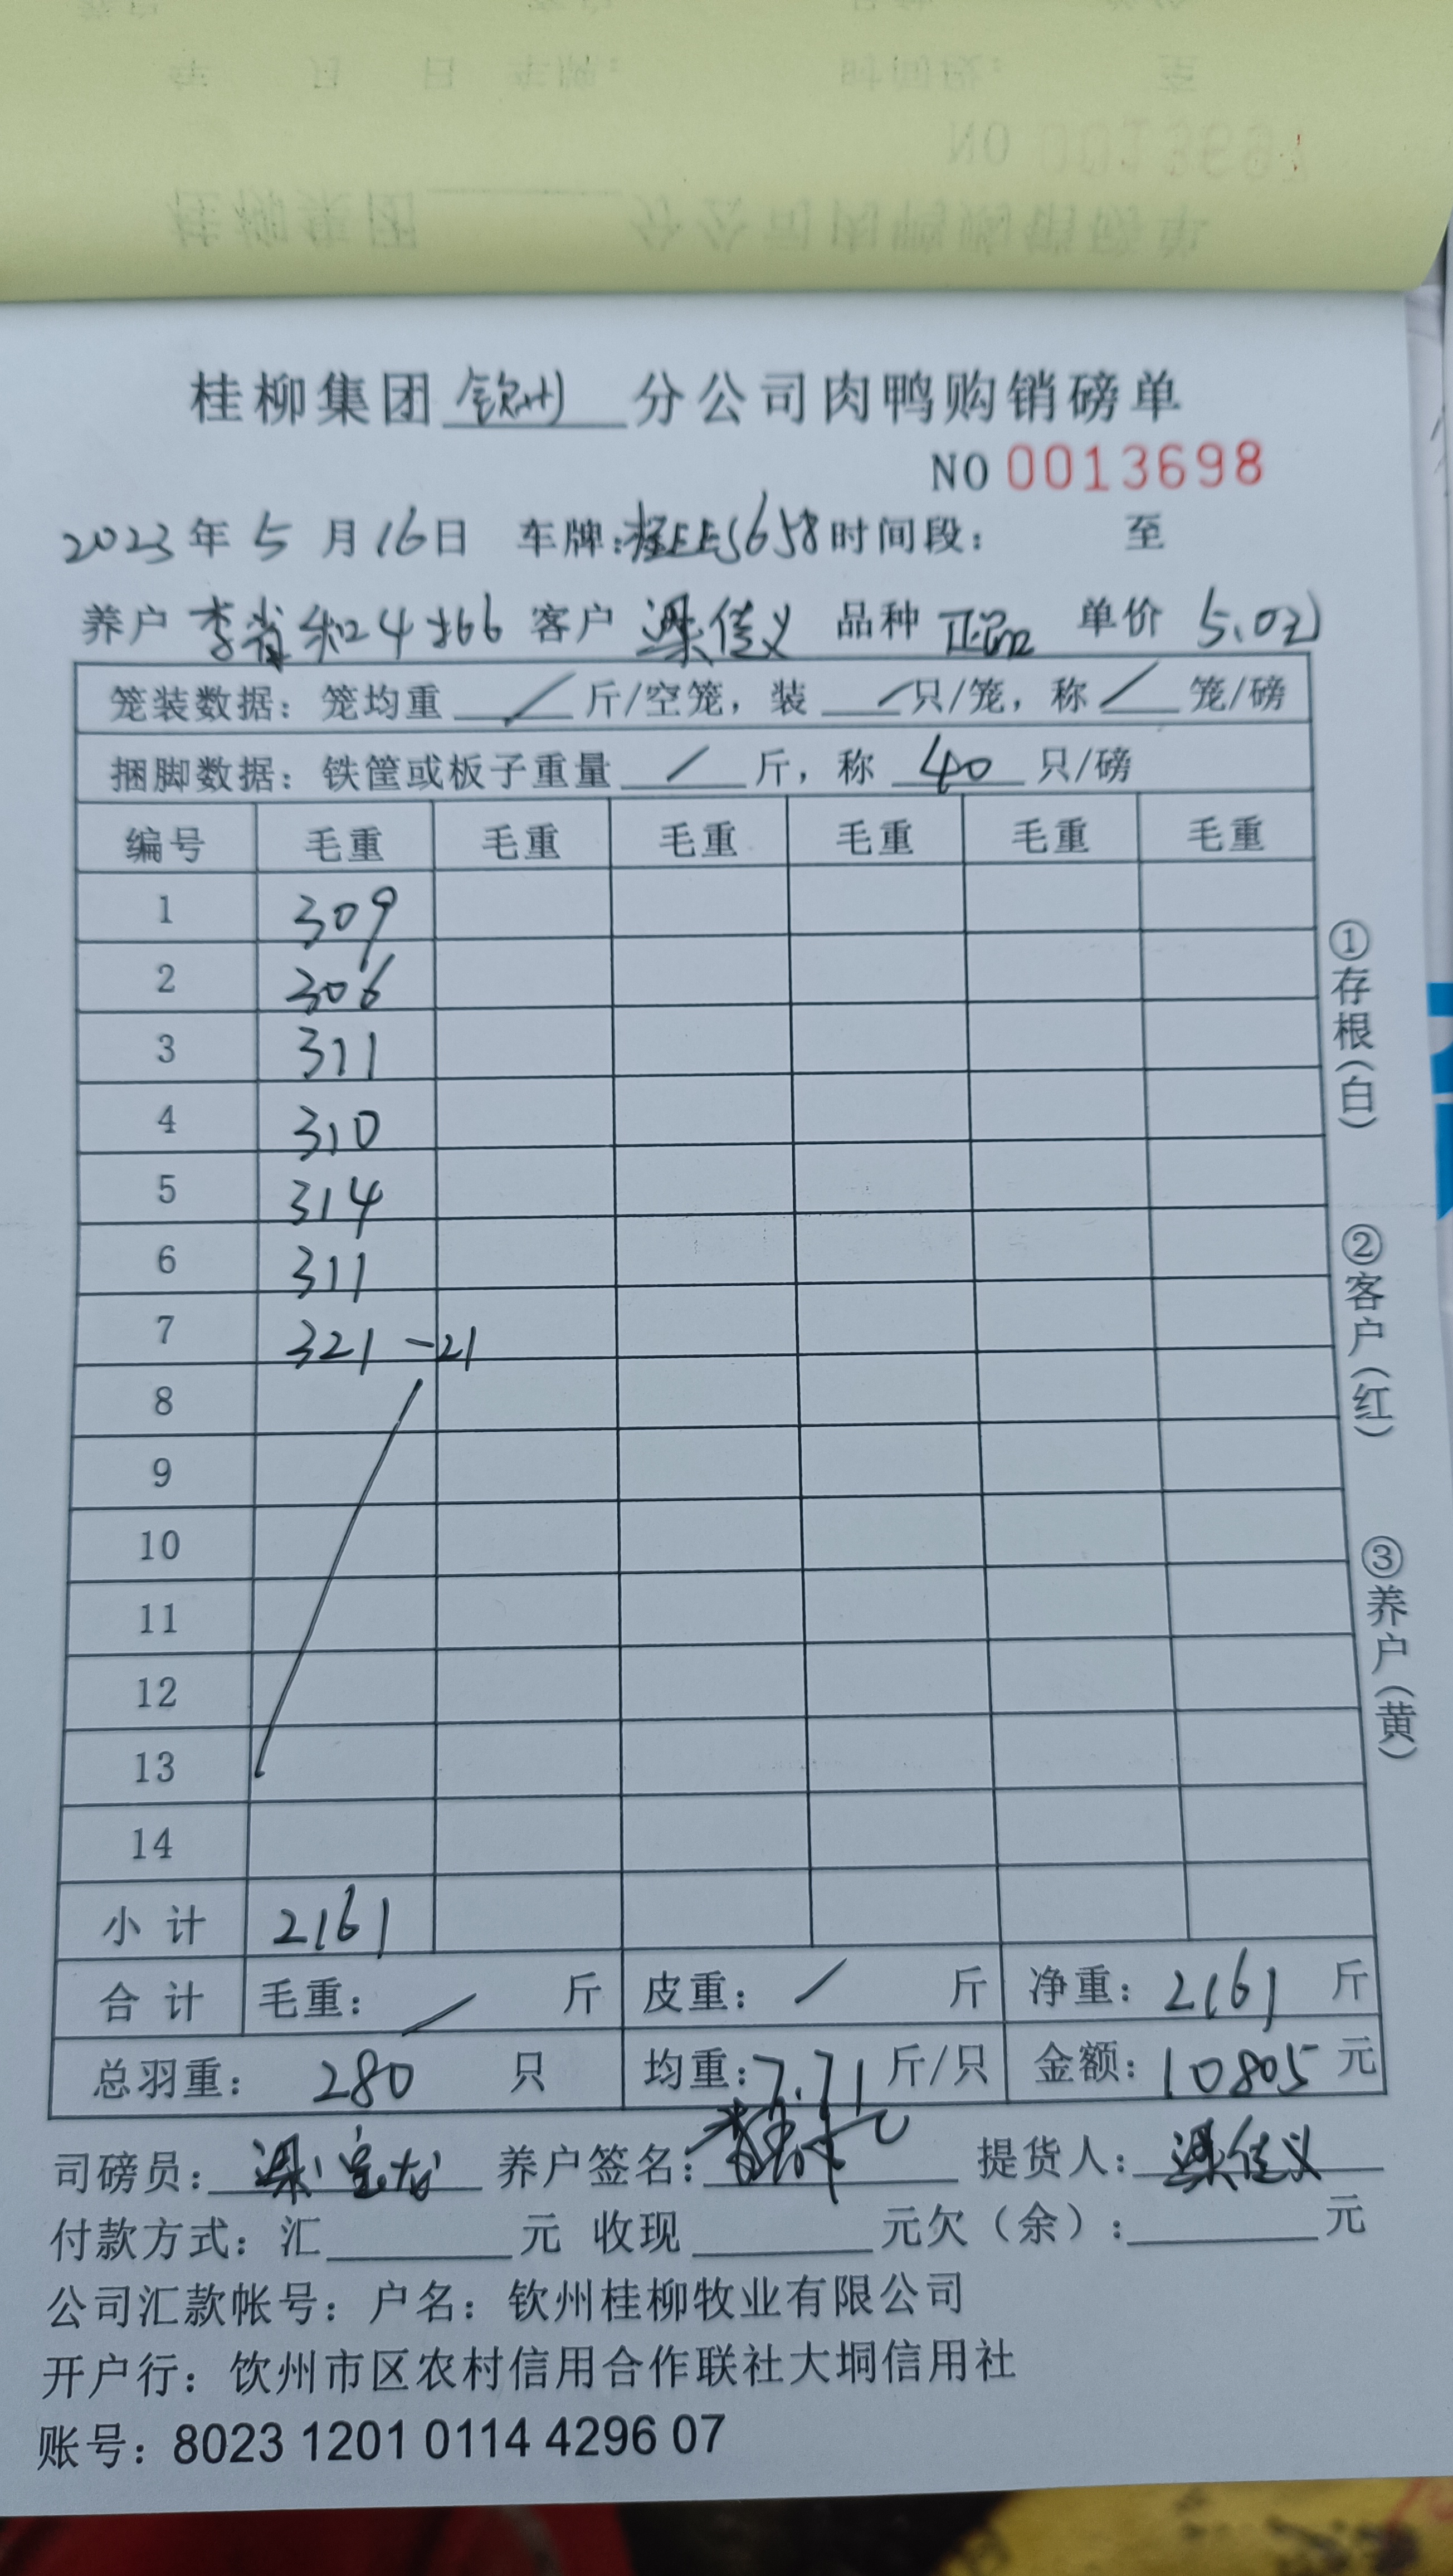 桂柳集团 钦州 分公司肉鸭购销磅单
NO 0013698
2023年5月16日 车牌:桂EE5658 时间段: 至
养户 李肖和 客户 梁佳义 品种 正品 单价 5.0元
笼装数据: 笼均重 / 斤/空笼, 装 / 只/笼, 称 / 笼/磅
捆脚数据: 铁筐或板子重量 / 斤, 称 40 只/磅
编号 毛重 毛重 毛重 毛重 毛重 毛重
1 309
2 306
3 311
4 310
5 314
6 311
7 321 -21
8
9
10
11
12
13
14
小计 2161
合计 毛重: / 斤 皮重: / 斤 净重: 2161 斤
总羽重: 280 只 均重: 7.71 斤/只 金额: 10805 元
司磅员: 养户签名: 提货人: 梁佳义
付款方式: 汇 元 收现 元欠(余): 元
公司汇款帐号: 户名: 钦州桂柳牧业有限公司
开户行: 钦州市区农村信用合作联社大垌信用社
账号: 8023 1201 0114 4296 07
①存根(白)
②客户(红)
③养户(黄)